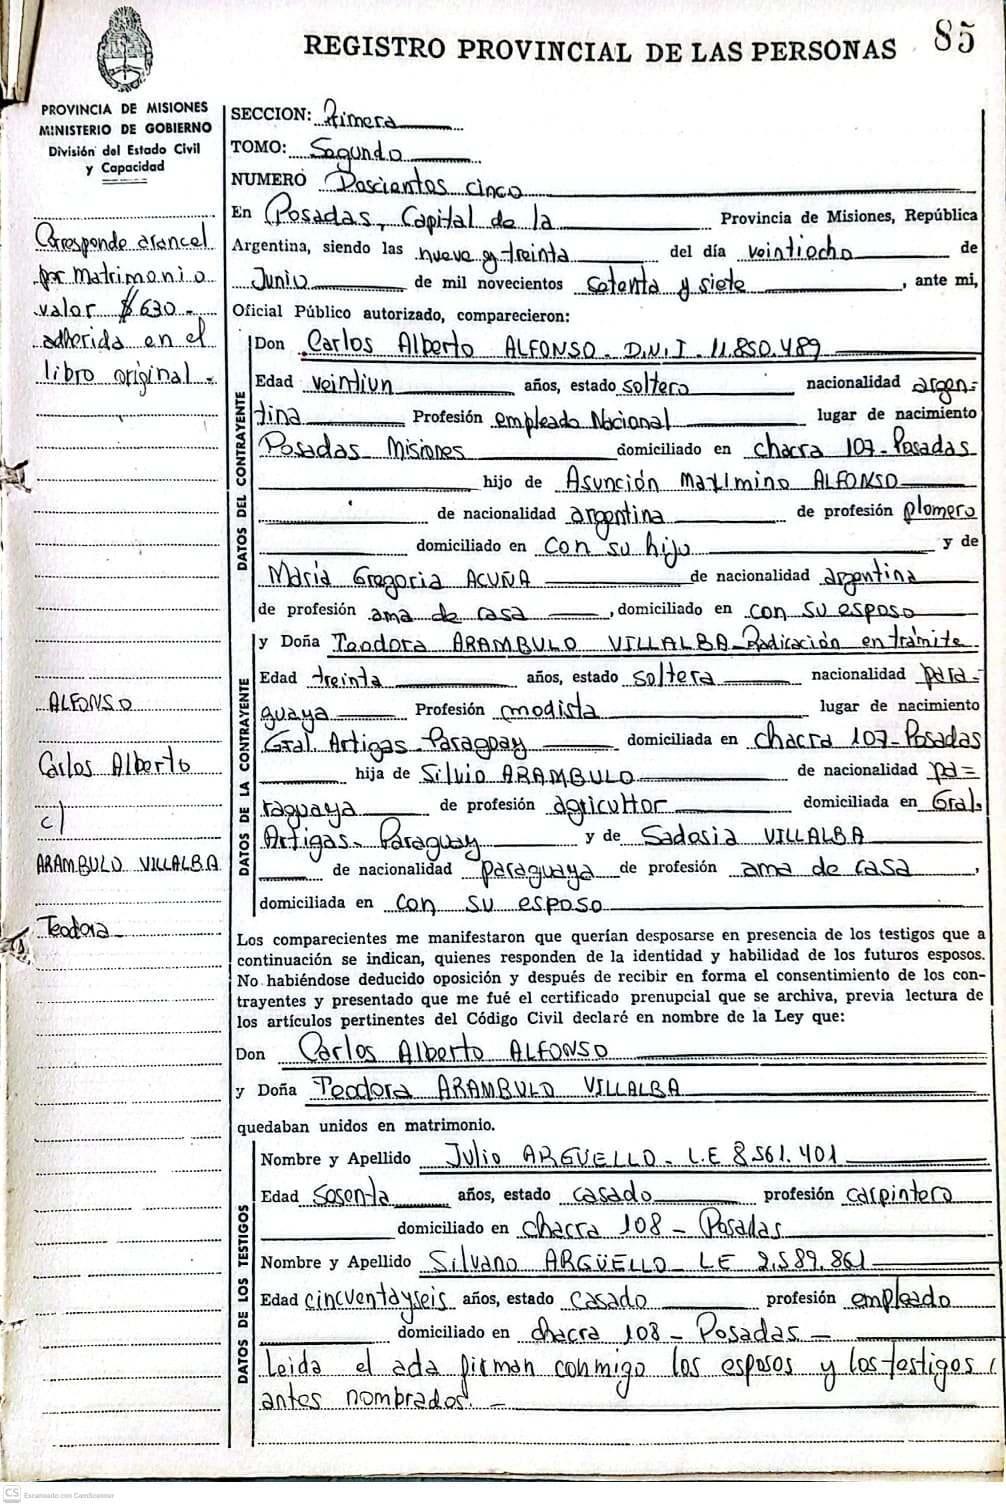 REGISTRO PROVINCIAL DE LAS PERSONAS 85
PROVINCIA DE MISIONES
MINISTERIO DE GOBIERNO
División del Estado Civil
y Capacidad
Corresponde arancel
por matrimonio
valor $ 630-
adherida en el
libro original-
ALFONSO
Carlos Alberto
c/
ARAMBULO VILLALBA
Teodora-
SECCION: Primera
TOMO: Segundo
NUMERO Doscientos cinco
En Posadas, Capital de la Provincia de Misiones, República
Argentina, siendo las nueve y treinta del día veintiocho de
Junio de mil novecientos setenta y siete, ante mi,
Oficial Público autorizado, comparecieron:
DATOS DEL CONTRAYENTE
Don Carlos Alberto ALFONSO- D.N.I. 11.850.489
Edad veintiun años, estado soltero nacionalidad argen=
tina Profesión empleado Nacional lugar de nacimiento
Posadas Misiones domiciliado en chacra 107-Posadas
hijo de Asunción Maximino ALFONSO
de nacionalidad argentina de profesión plomero
domiciliado en con su hijo y de
María Gregoria ACUÑA de nacionalidad argentina
de profesión ama de casa, domiciliado en con su esposo
DATOS DE LA CONTRAYENTE
y Doña Teodora ARAMBULO VILLALBA-Radicación en trámite
Edad treinta años, estado soltera nacionalidad para-
guaya Profesión modista lugar de nacimiento
Gral. Artigas-Paraguay domiciliada en chacra 107-Posadas
hija de Silvio ARAMBULO de nacionalidad pa=
raguaya de profesión agricultor domiciliada en Gral.
Artigas-Paraguay y de Sadosia VILLALBA
de nacionalidad paraguaya de profesión ama de casa,
domiciliada en con su esposo
Los comparecientes me manifestaron que querían desposarse en presencia de los testigos que a
continuación se indican, quienes responden de la identidad y habilidad de los futuros esposos.
No habiéndose deducido oposición y después de recibir en forma el consentimiento de los con-
trayentes y presentado que me fué el certificado prenupcial que se archiva, previa lectura de
los artículos pertinentes del Código Civil declaré en nombre de la Ley que:
Don Carlos Alberto ALFONSO
y Doña Teodora ARAMBULO VILLALBA
quedaban unidos en matrimonio.
DATOS DE LOS TESTIGOS
Nombre y Apellido Julio ARGÜELLO- L.E 8561.401
Edad sesenta años, estado casado profesión carpintero
domiciliado en chacra 108 - Posadas
Nombre y Apellido Silvano ARGÜELLO- LE 2.589.861
Edad cincuentayseis años, estado casado profesión empleado
domiciliado en chacra 108 - Posadas-
Leida el acta firman conmigo los esposos y los testigos
antes nombrados.-
CS Escaneado con CamScanner